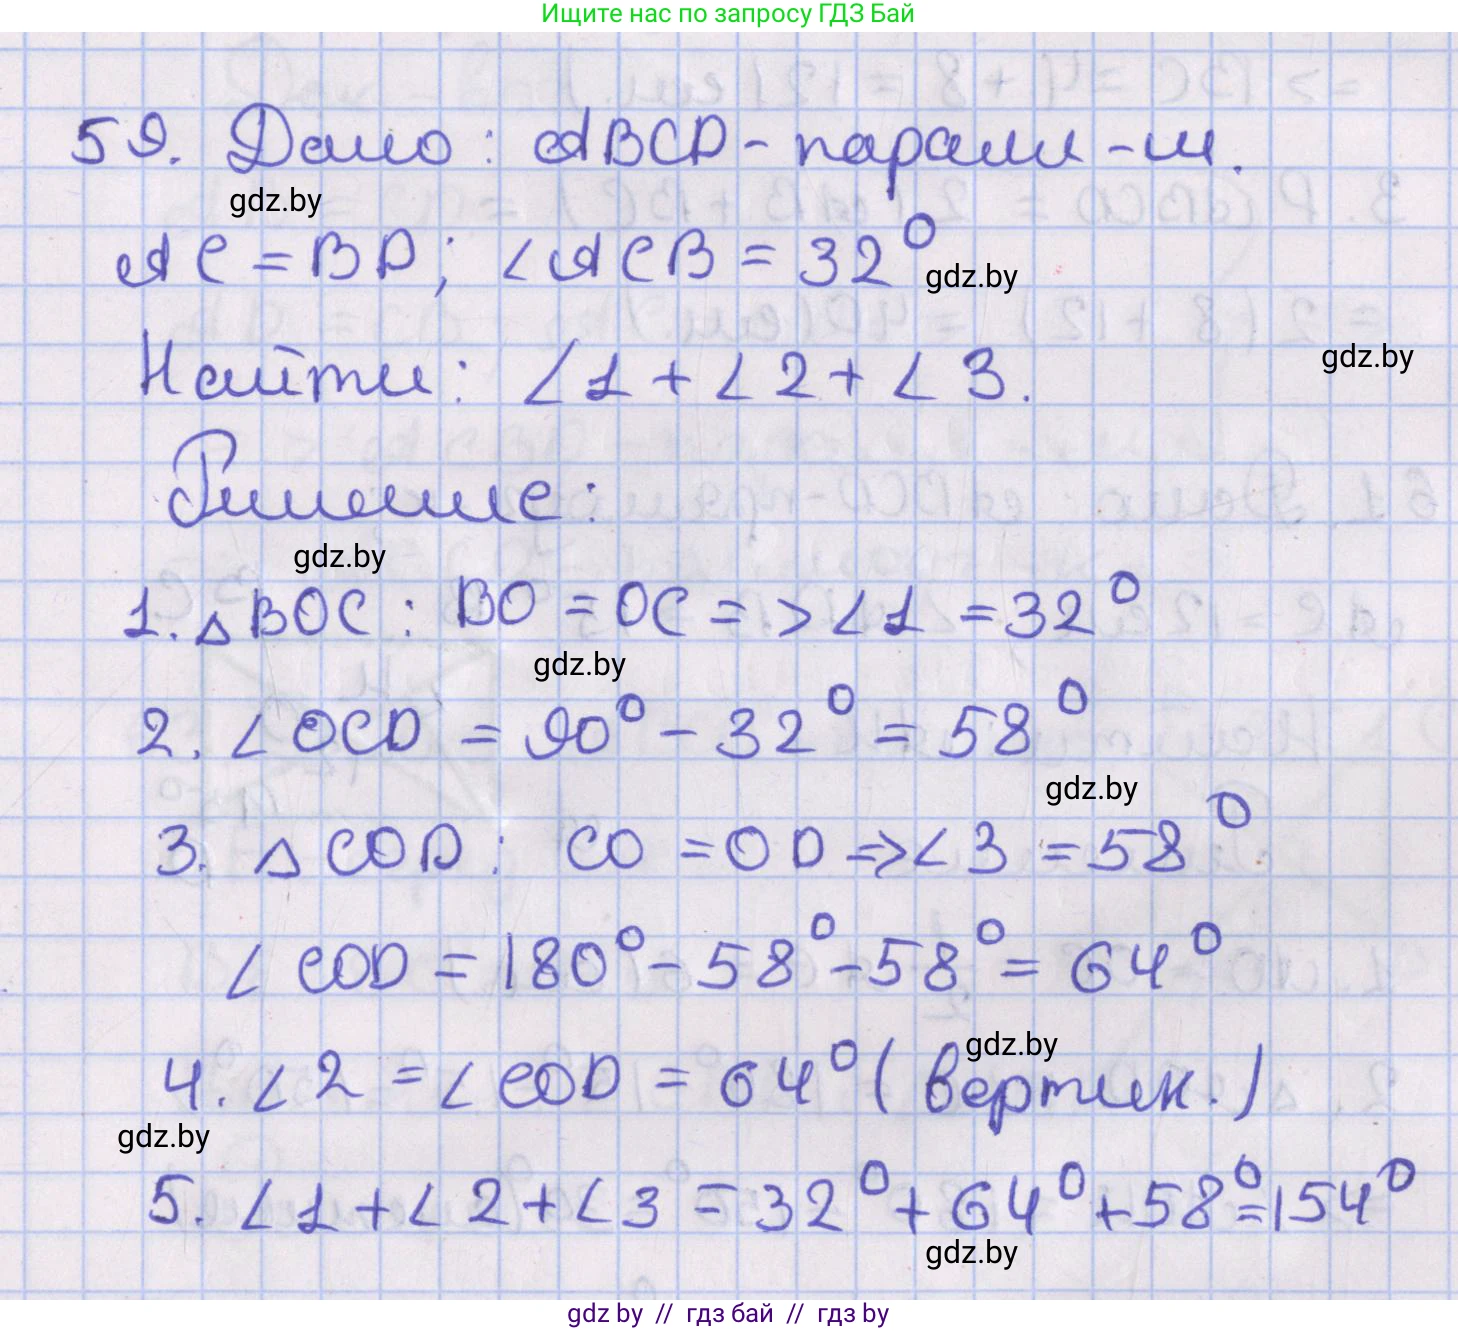 Ищите нас по запросу ГДЗ Бай
59. Дано: ABCD - паралл-м.
gdz.by
AC = BD; ∠ACB = 32°
gdz.by
Найти: ∠1 + ∠2 + ∠3.
gdz.by
Решение:
gdz.by
1. △BOC: BO = OC => ∠1 = 32°
gdz.by
2. ∠OCD = 90° - 32° = 58°
gdz.by
3. △COD: CO = OD => ∠3 = 58°
∠COD = 180° - 58° - 58° = 64°
gdz.by
4. ∠2 = ∠COD = 64° (вертик.)
gdz.by
5. ∠1 + ∠2 + ∠3 = 32° + 64° + 58° = 154°
gdz.by
gdz by // гдз бай // гдз by